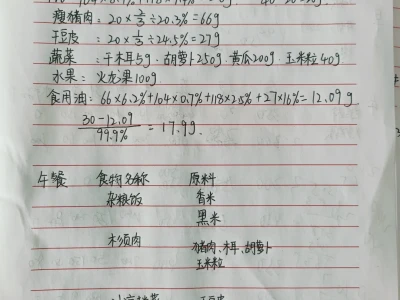 瘦猪肉：20×2/3÷20.3%=66g
干豆皮：20×1/3÷24.5%=27g
蔬菜：干木耳5g、胡萝卜250g、黄瓜200g、玉米粒40g
水果：火龙果100g
食用油：66×6.2%+104×0.7%+118×2.5%+27×16%=12.09g
30-12.09/99.9%=17.9g.
午餐 食物名称 原料
杂粮饭 香米
黑米
木须肉 猪肉、木耳、胡萝卜
玉米粒
豆皮